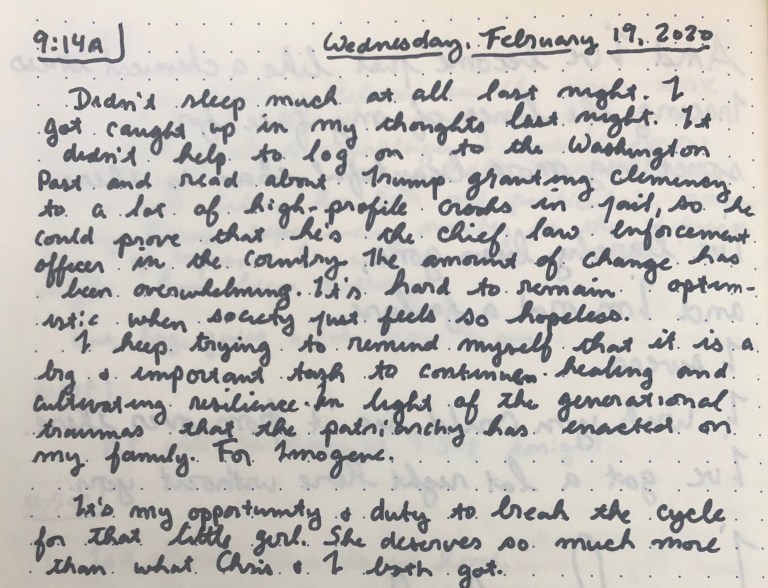 9:14A Wednesday, February 19, 2020
Didn't sleep much at all last night. I
got caught up in my thoughts last night. It
didn't help to log on to the Washington
Post and read about Trump granting clemency
to a lot of high-profile crooks in jail, so he
could prove that he's the chief law enforcement
officer in the country. The amount of change has
been overwhelming. It's hard to remain optim-
istic when society just feels so hopeless.
I keep trying to remind myself that it is a
big & important task to continue healing and
cultivating resilience in light of the generational
traumas that the patriarchy has enacted on
my family. For Imogene.
It's my opportunity & duty to break the cycle
for that little girl. She deserves so much more
than what Chris & I both got.